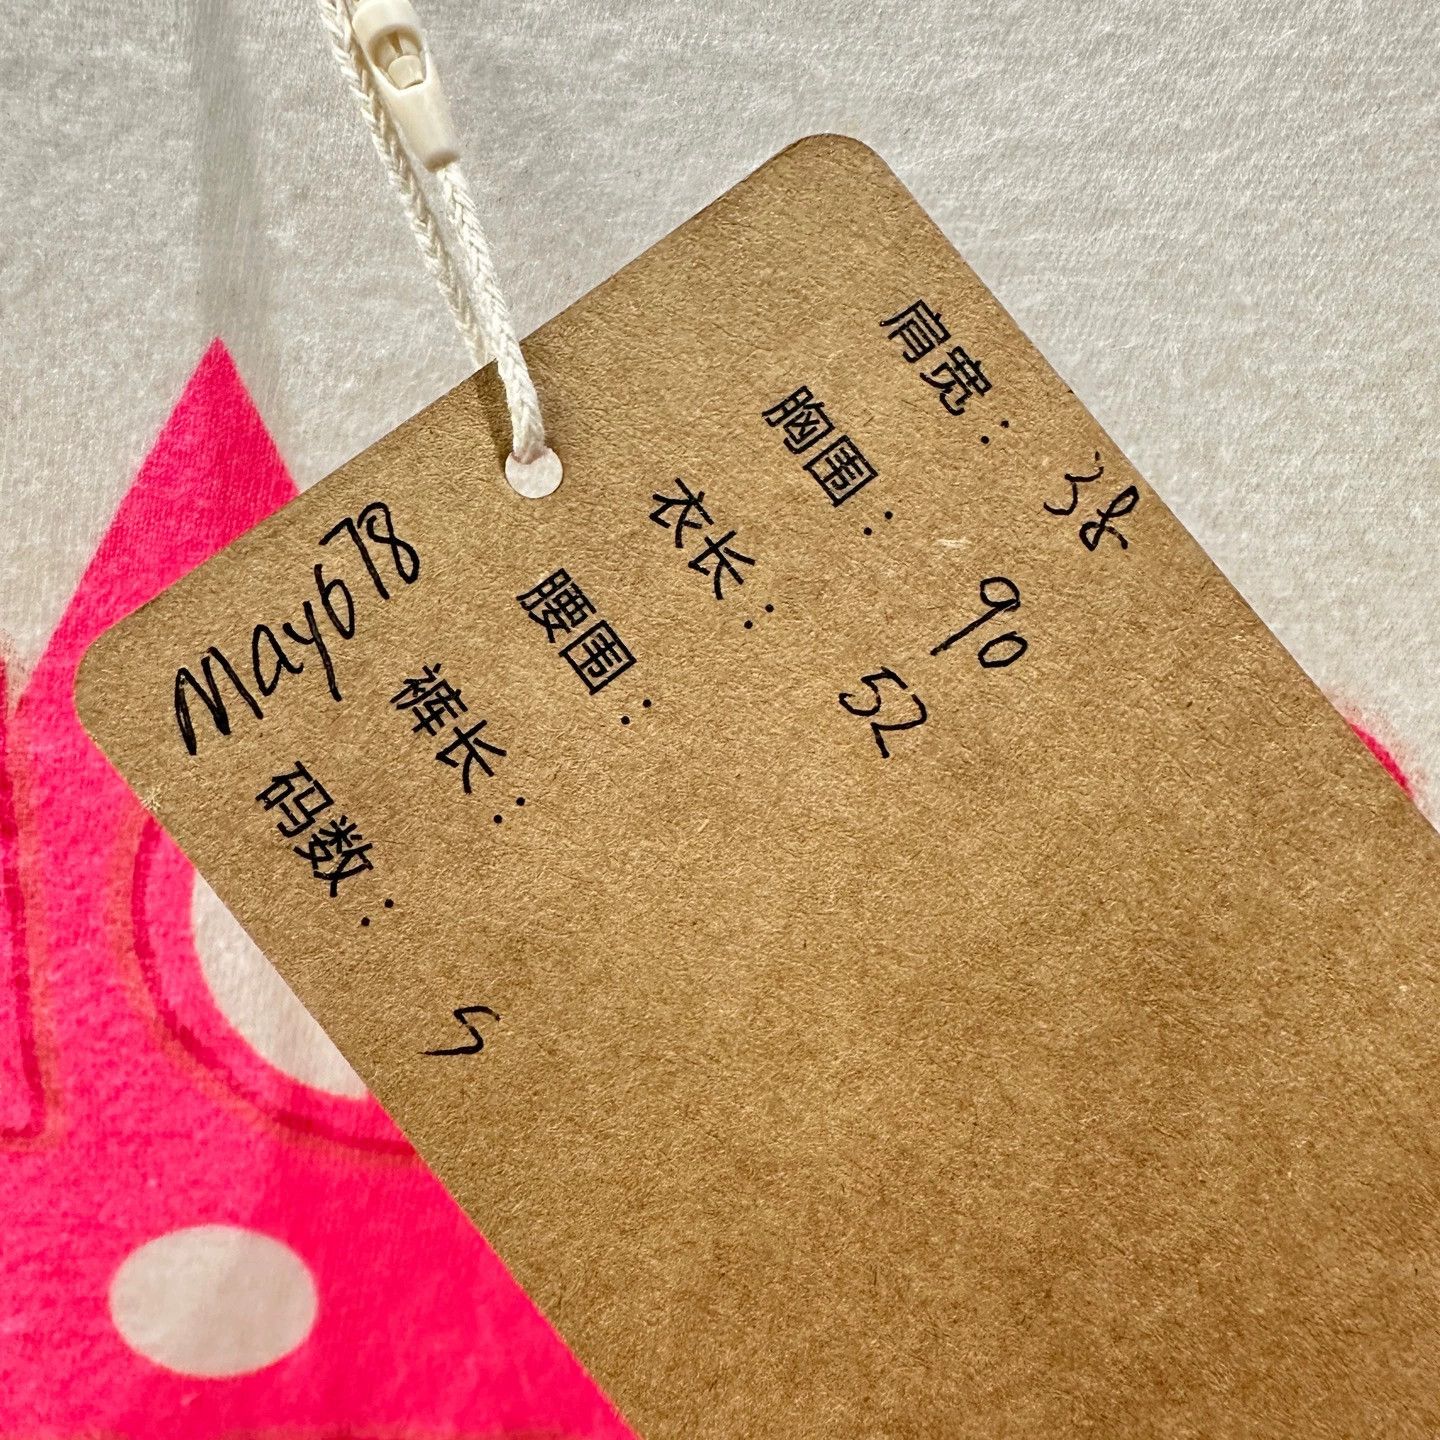 May678
肩宽：38
胸围：90
衣长：52
腰围：
裤长：
码数：S